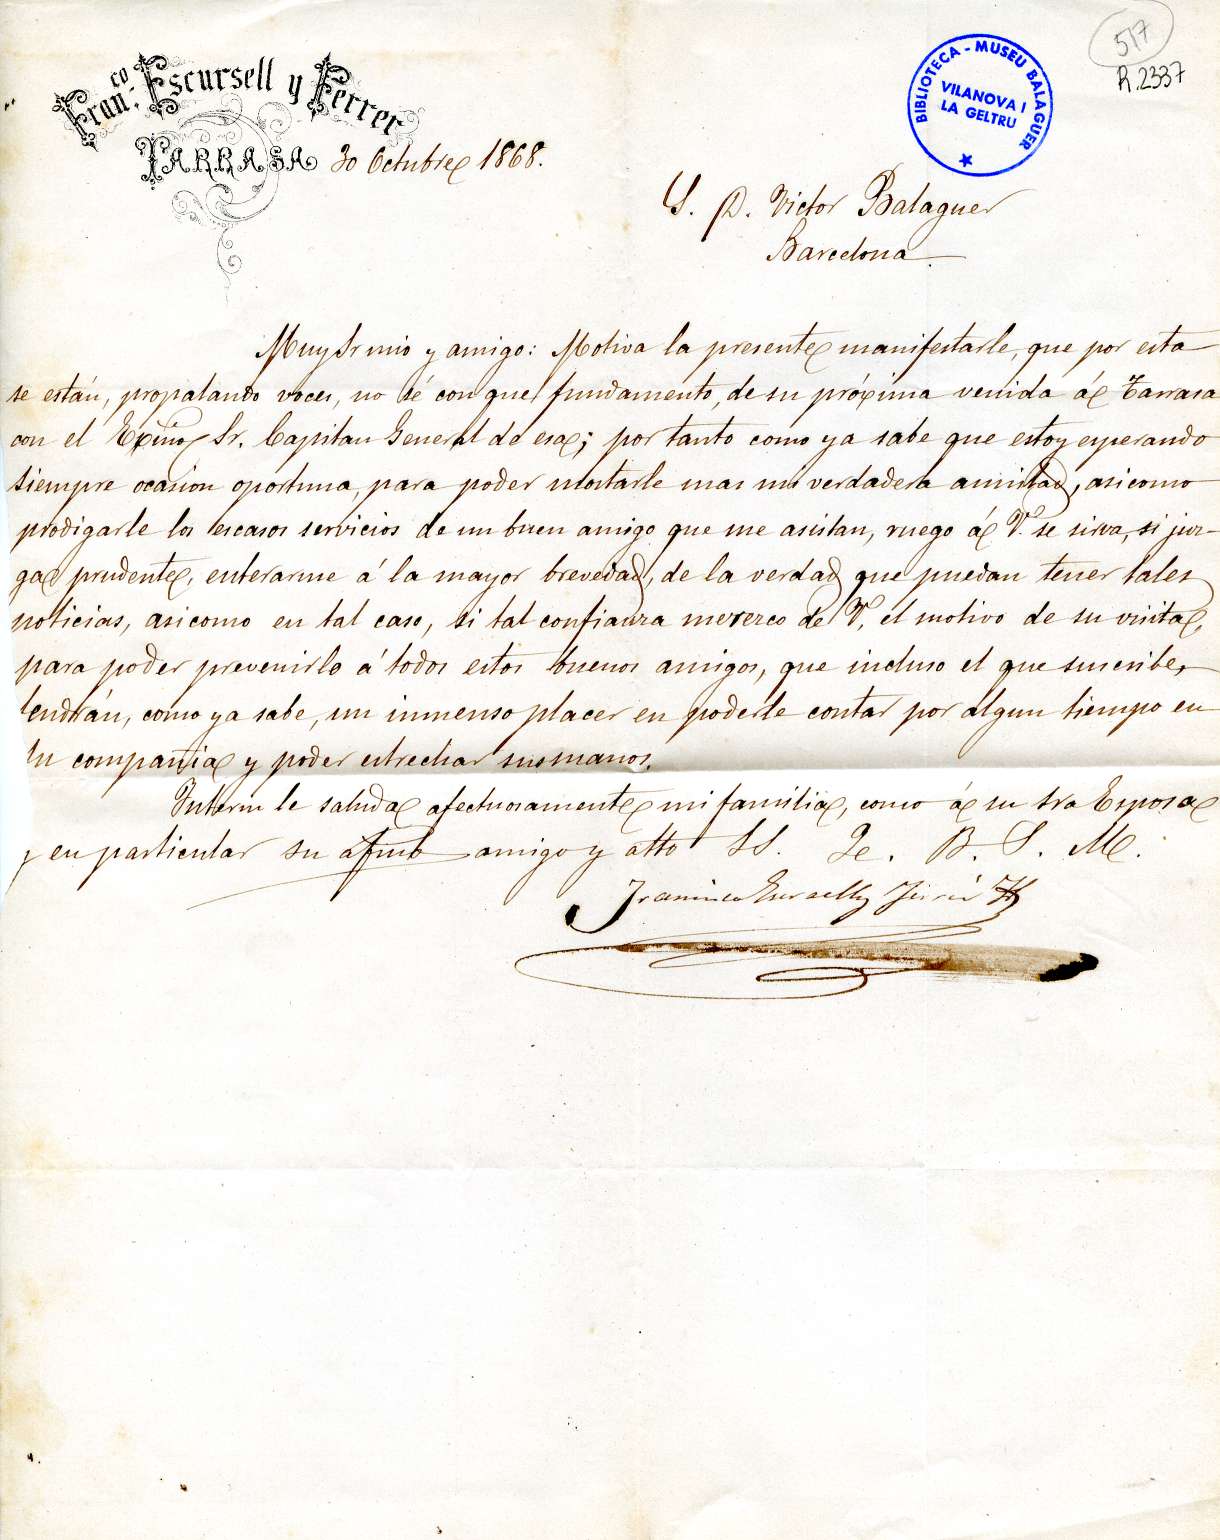 Fran.co Escursell y Ferrer
TARRASA 30 Octubre 1868.
BIBLIOTECA - MUSEU BALAGUER
VILANOVA I
LA GELTRU
517
R.2337
S. D. Victor Balaguer
Barcelona
Muy Sr mio y amigo: Motiva la presente manifestarle, que por esta
se están, propalando voces, no sé con que fundamento, de su próxima venida á Tarrasa
con el Exmo Sr. Capitan General de esa; por tanto como ya sabe que estoy esperando
siempre ocasion oportuna, para poder mostarle mas mi verdadera amistad, asicomo
prodigarle los escasos servicios de un buen amigo que me asistan, ruego á V. se sirva, si juz-
ga prudente, enterarme á la mayor brevedad, de la verdad que puedan tener tales
noticias, asicomo en tal caso, si tal confianza merezco de V, el motivo de su visita,
para poder prevenirlo á todos estos buenos amigos, que incluso el que suscribe,
tendrán, como ya sabe, un inmenso placer en poderle contar por algun tiempo en
su compañia y poder estrechar sus manos.
Interin le saluda afectuosamente mi familia, como á su Sra Esposa
y en particular su afmo amigo y atto SS. Q. B. S. M.
Francisco Escursell y